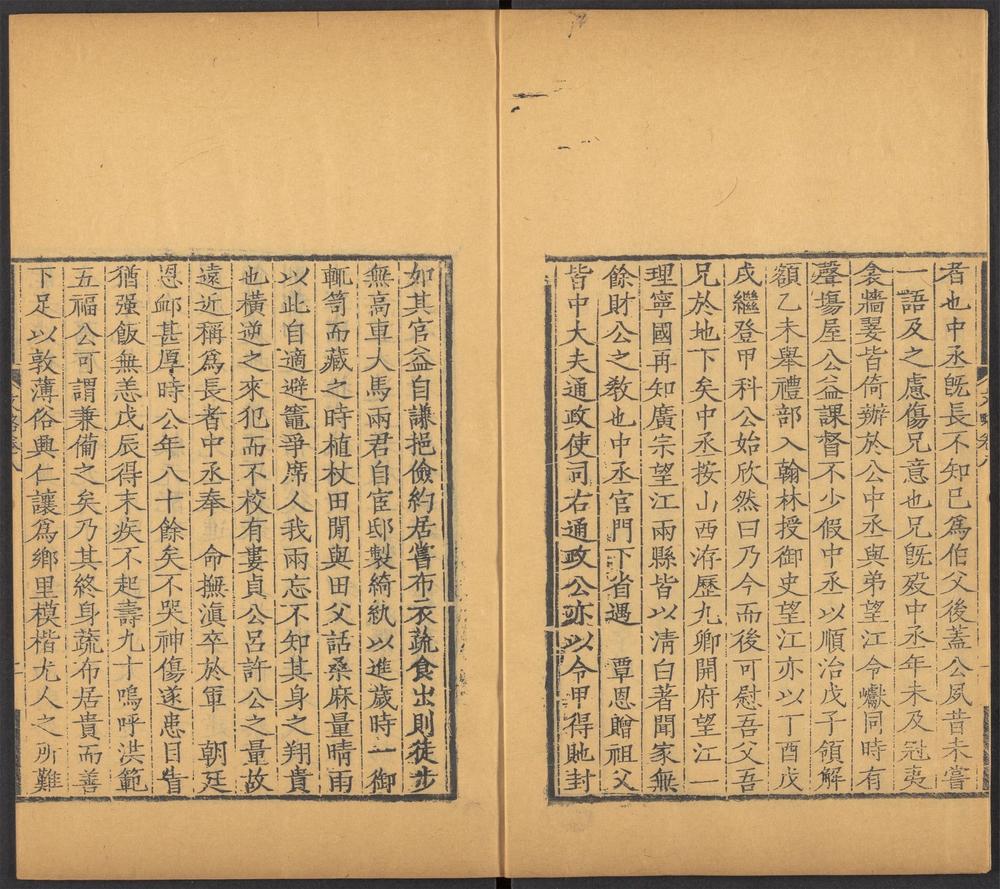 者也中丞旣長不知已爲伯父後蓋公夙昔未嘗
一語及之慮傷兄意也兄旣歿中丞年未及冠夷
衾牆翣皆倚辦於公中丞與弟望江令巘同時有
聲塲屋公益課督不少假中丞以順治戊子領解
額乙未舉禮部入翰林授御史望江亦以丁酉戊
戌繼登甲科公始欣然曰乃今而後可慰吾父吾
兄於地下矣中丞按山西洊歷九卿開府望江一
理寧國再知廣宗望江兩縣皆以淸白著聞家無
餘財公之敎也中丞官門下省遇　覃恩贈祖父
皆中大夫通政使司右通政公亦以令甲得貤封
如其官益自謙挹儉約居嘗布衣蔬食出則徒步
無高車大馬兩君自宦邸製綺紈以進歲時一御
輒笥而藏之時植杖田閒與田父話桑麻量晴雨
以此自適避竈爭席人我兩忘不知其身之翔貴
也橫逆之來犯而不校有婁貞公呂許公之量故
遠近稱爲長者中丞奉　命撫滇卒於軍　朝廷
恩䘏甚厚時公年八十餘矣不哭神傷遂患目眚
猶强飯無恙戊辰得末疾不起壽九十嗚呼洪範
五福公可謂兼備之矣乃其終身蔬布居貴而善
下足以敦薄俗興仁讓爲鄉里模楷尤人之所難